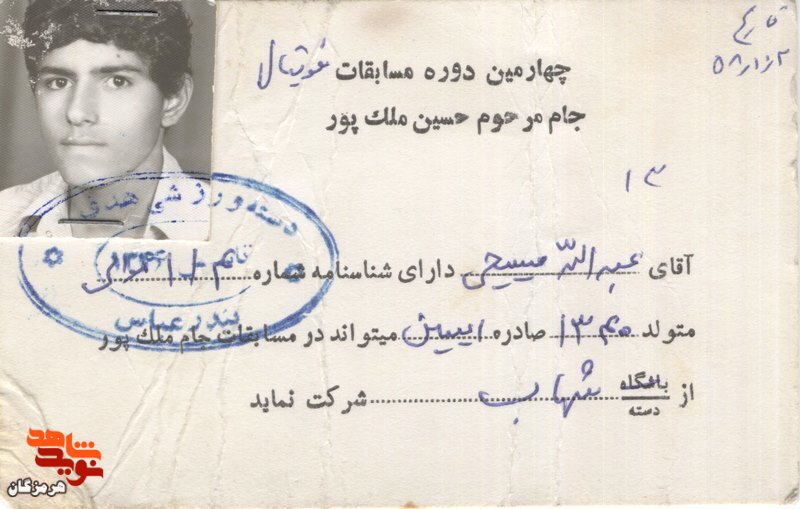 تاریخ
۵۸/۱/۲
چهارمین دوره مسابقات فوتبال
جام مرحوم حسین ملك پور
۱۳
آقای عبدالله مسیحی دارای شناسنامه شماره
متولد ۱۳۴۰ صادره میتواند در مسابقات جام ملك پور
از باشگاه
دسته شهاب شركت نماید
دسته ورزشی هدف
بندرعباس
شاهد
نوید
هرمزگان